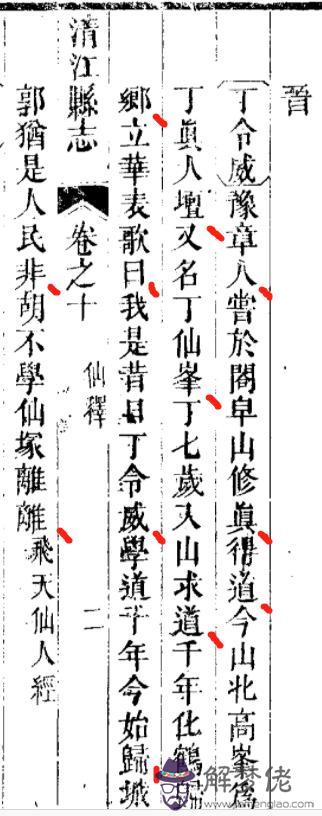 晉
丁令威豫章人嘗於閣皁山修眞得道今山北高峯後
丁眞人壇又名丁仙峯丁七歲入山求道千年化鶴歸
鄉立華表歌曰我是昔日丁令威學道千年今始歸城
清江縣志 卷之十 仙釋 二
郭猶是人民非胡不學仙塚離離 飛天仙人經
解夢佬